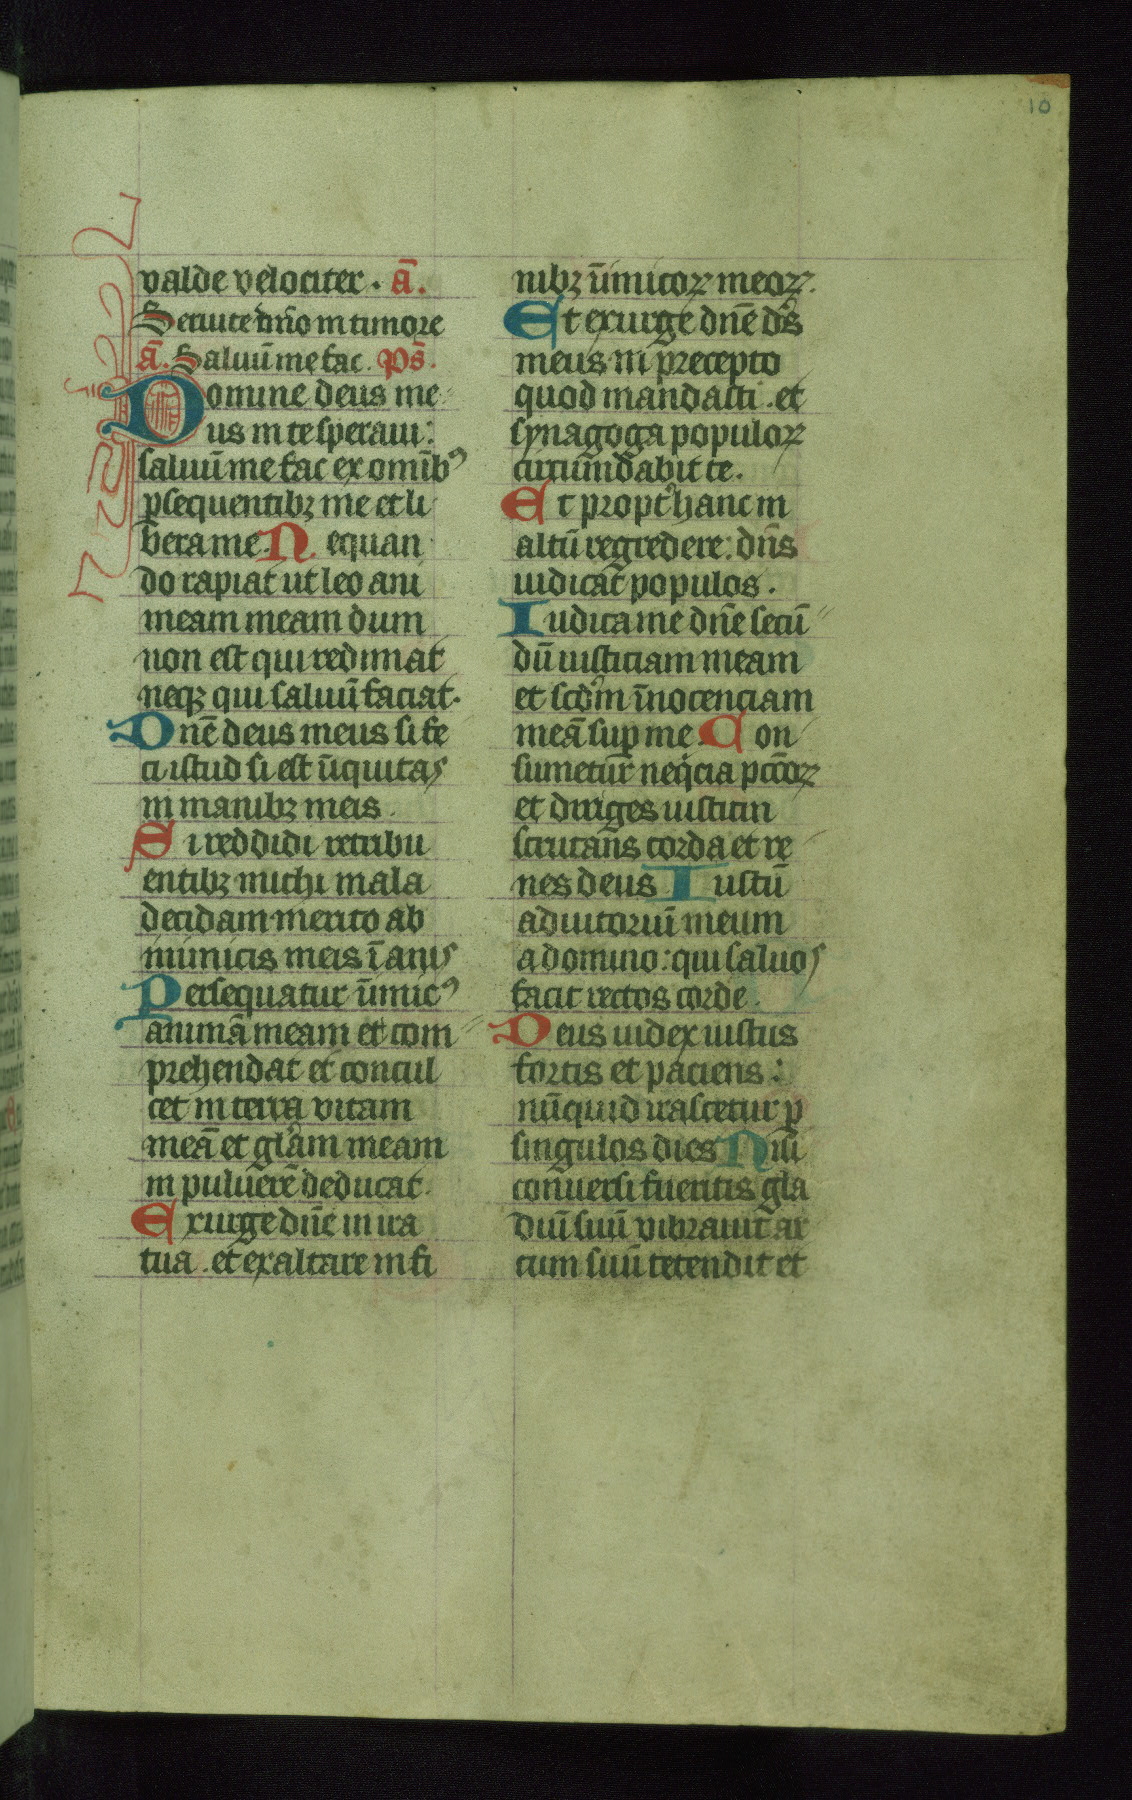 10
valde velociter. a̅.
Seruite dn̅o in timore
a̅. Saluu̅ me fac. ps̅.
Domine deus me
us in te speraui:
saluu̅ me fac ex omib̅ꝰ
ꝑsequentibꝫ me et li
bera me. Ne quan
do rapiat ut leo ani
meam meam dum
non est qui redimat
neqꝫ qui saluu̅ faciat.
Dn̅e deus meus si fe
ci istud si est i̅iquitas
in manibꝫ meis.
Si reddidi retribu
entibꝫ michi mala
decidam merito ab
inimicis meis i̅anis
Persequatur i̅imicꝰ
anima̅ meam et com
prehendat et concul
cet in terra vitam
mea̅ et gl̅am meam
in puluere̅ deducat.
Exurge dn̅e in ira
tua. et exaltare in fi
nibꝫ i̅imicoꝝ meoꝝ.
Et exurge dn̅e ds̅
meus in precepto
quod mandasti. et
synagoga populoꝝ
circumdabit te.
Et propt̅ hanc in
altu̅ regredere: dn̅s
iudicat populos.
Iudica me dn̅e secu̅
du̅ iusticiam meam
et scdm̅ i̅nocenciam
mea̅ suꝑ me. Con
sumetur neq̇cia pcc̅oꝝ
et diriges iustum
scrutans corda et re
nes deus Iustu̅
adiutoriu̅ meum
a domino: qui saluos
facit rectos corde.
Deus iudex iustus
fortis et paciens:
nu̅quid irascetur ꝑ
singulos dies Nisi
conuersi fueritis gla
diu̅ suu̅ vibrauit ar
cum suu̅ tetendit et